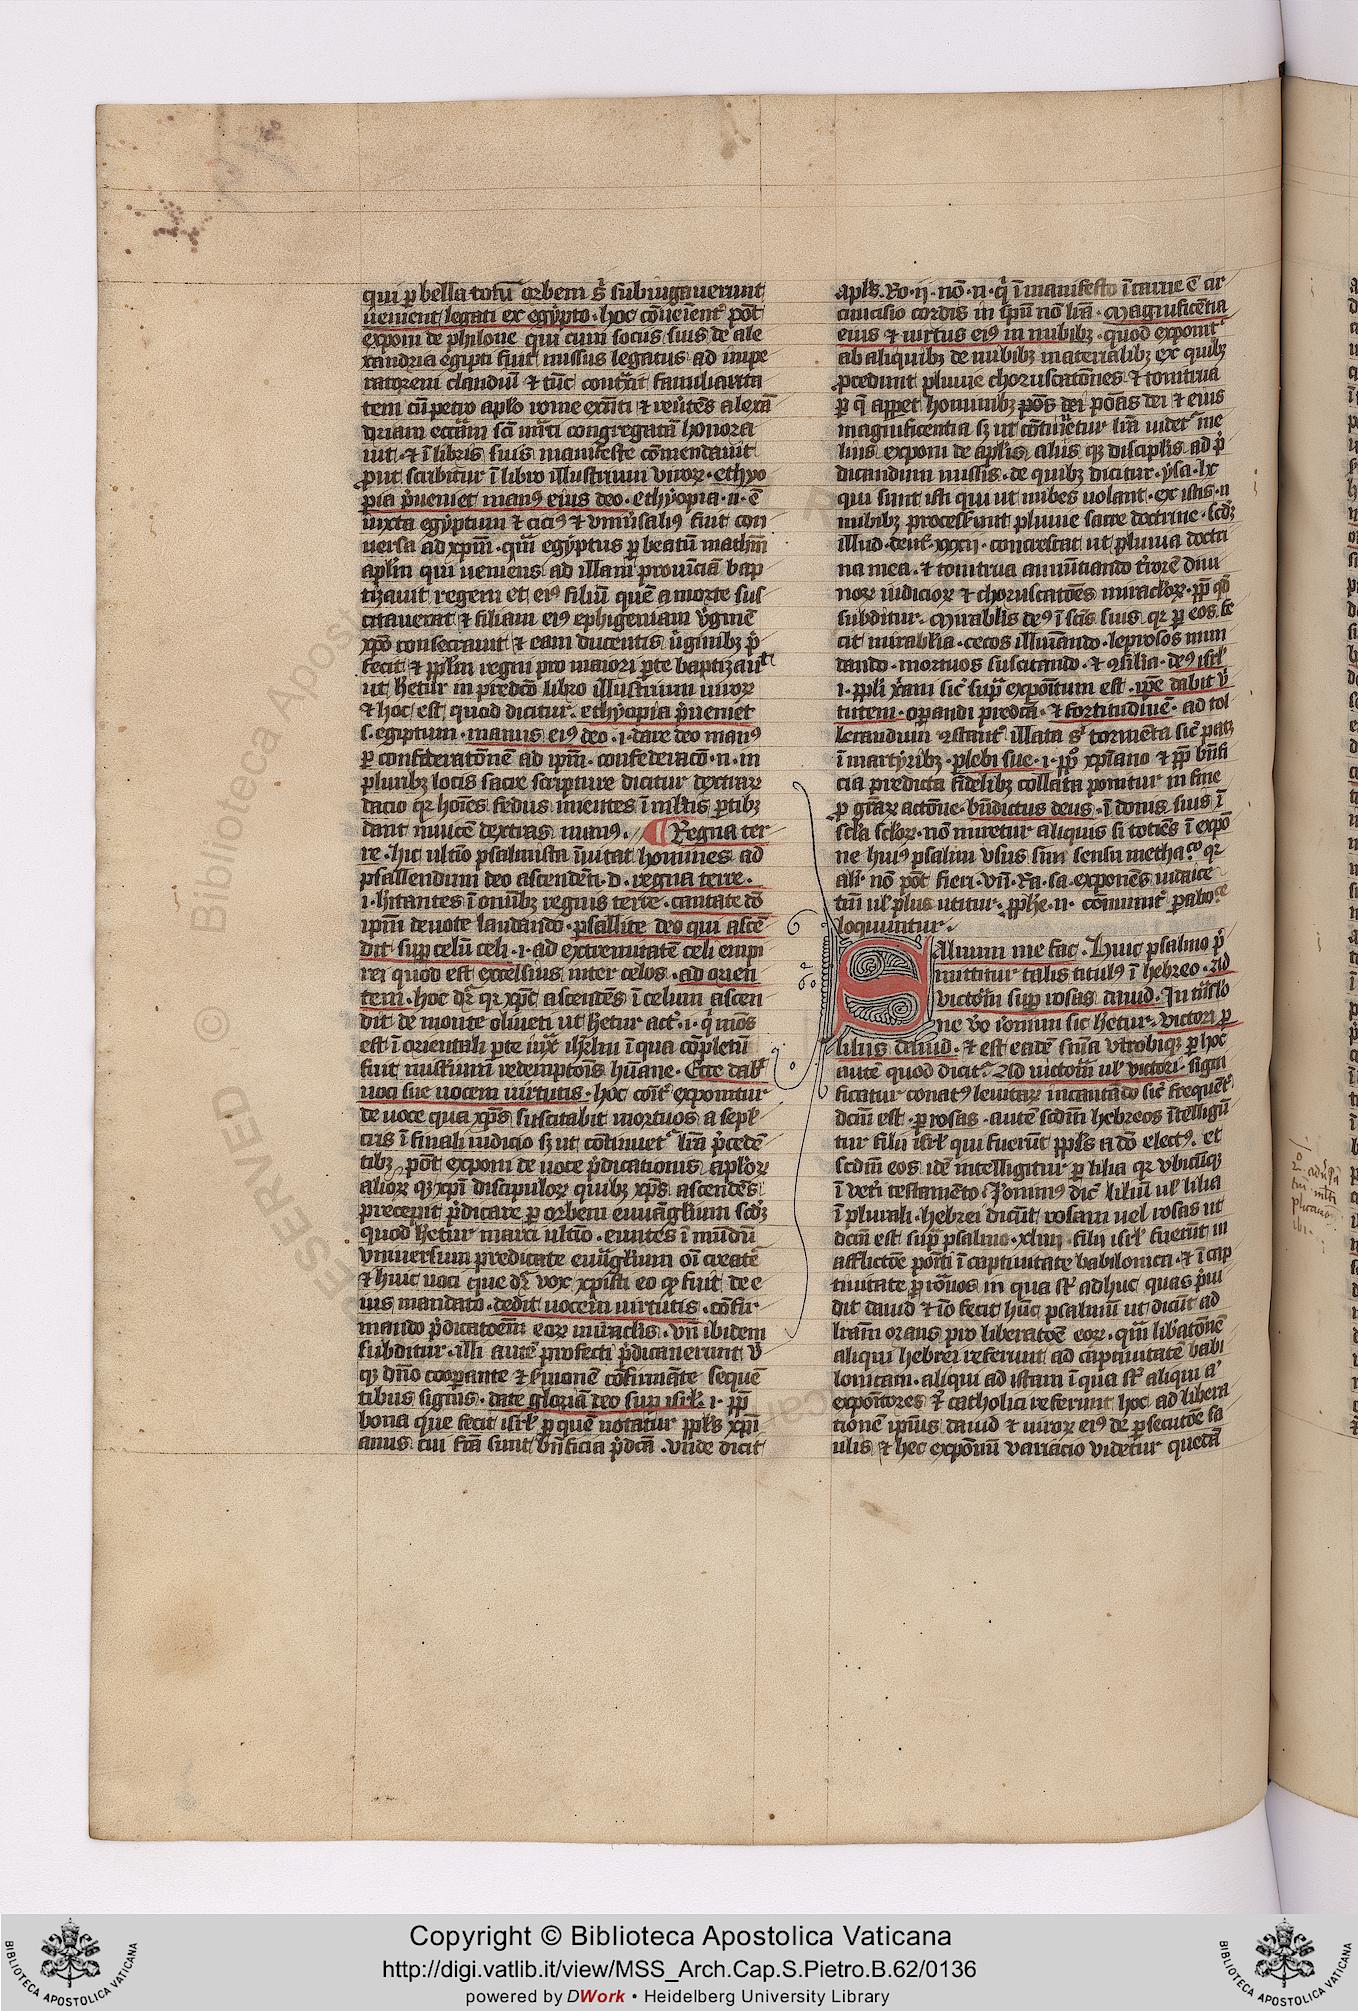 qui ꝑ bella totū orbem s̄ subiugauerunt
uenient legati ex egypto. hoc cōuenient᷑ pōt
exponi de philone qui cum socius suis de ale
xandria egipti fiut missus legatus ad impe
ratorem claudiū ⁊ tūc cont̃xit familiarita
tem cū petro aplo rome exn̄ti ⁊ reũtēs alexā
driam ecc̄am sc̄i mr̄ci congregatā honora
uit. ⁊ ī libris suis manifeste cōmendauit
ꝓut scribitur ī libro illustrium viroꝝ. ethyo
pia p̄ueniet manꝰ eius deo. ethyopia .n. ē
iuxta egyptum ⁊ ciciꝰ ⁊ vniũsaliꝰ fiut con
uersa ad xp̄m. qm̄ egyptus ꝑ beatū mathm̄
aplm̄ qui ueniens ad illam prouinciā bap
tizauit regem et eiꝰ filiū quē a morte sus
citauerat ⁊ filiam eiꝰ ephigeniam v̄ginē
xp̄o consecrauit ⁊ eam ducentis ũginibꝫ p̄
fecit ⁊ ppl̄m regni pro maiori ꝑte baptizauit
ut hetur in predc̄o libro illustrium uiroꝝ
⁊ hoc est quod dicitur. ethyopia p̄ueniet
s. egiptum. manus eiꝰ deo .i. dare deo manꝰ
ꝑ confideratōnē ad ip̄m. confederacō .n. in
pluribꝫ locis sacre scripture dicitur dextraꝝ
datio qꝛ hoīes fedus inientes ī mltis ꝑtibꝫ
dant inuicē dextras manꝰ. Regna ter
re. hic ultīo psalmista īuitat homines ad
psallendum deo ascendēti .d. regna terre.
.i. hitantes ī om̄ibꝫ regnis terre. cantate dō
ip̄m deuote laudando. psallite deo qui ascē
dit sup̄ celū celi .i. ad extremitatē celi empi
rei quod est excelsius inter celos. ad orien
tem. hoc dr̄ qꝛ xp̄c ascendēs ī celum ascen
dit de monte oliueti ut hetur act̄. i. q̄ mōs
est ī orientali ꝑte iux̄ ihrlm ī qua cōpletū
fiut misterium redemptionis hūane. Ecce dabit
uoci sue uocem uirtutis. hoc cōit̄ exponitur
de uoce qua xp̄s suscitabit mortuos a sepl̄
cris ī finali iudicio sꝫ ut cōtinuet᷑ lr̄a p̄cedē
tibꝫ pōt exponi de uoce p̄dicationis aploꝝ
alioꝝ qꝫ xp̄i discipuloꝝ quibꝫ xp̄s ascendēs
precepit p̄dicare ꝑ orbem euuāgl̄ium scdꝫ
quod hetur marci ultīo. euntes ī mūdū
vniuersum predicate euāgl̄ium oī creatē
⁊ huic uoci que dr̄ vox xp̄isti eo ꝙ fiut de e
ius mandato. dedit uocem uirtutis. cōfir
mando p̄dicatōem eoꝝ miraclis. vn̄ ibidem
subditur. illi autē profecti p̄dicauerunt v̄
qꝫ dn̄o coopante ⁊ ẜmonē cōfirmāte sequē
tibus signis. date gloriā deo sup̄ isrl̄ .i. pp̄
bona que fecit isrl̄ ꝑ quē notatur ppl̄s xp̄i
anus cui fc̄a sunt bn̄ficia p̄dc̄a. vnde dicit
apl̄s. Ro. ii. nō .n. q̄ ī manifesto ī carne ē cir
cūcisio cordis in sp̄u nō lr̄a. Magnificētia
eius ⁊ uirtus eiꝰ in nubibꝫ. quod exponit᷑
ab aliquibꝫ de nubibꝫ materialibꝫ ex quibꝫ
ꝓcedunt pluuie choruscatōnes ⁊ tonitrua
ꝑ q̄ apparet hominibꝫ pōs dei pōtas dei ⁊ eius
magnificentia sꝫ ut cōtinuetur lr̄a uidet᷑ me
lius exponi de aplis aliis qꝫ disciplis ad p̄
dicandum missis. de quibꝫ dicitur. ysa. lx
qui sunt isti qui ut nubes uolant. ex istis .n.
nubibꝫ processerunt pluuie sacre doctrine. scdꝫ
illud. deut̄. xxxii. concrescat ut pluuia docti
na mea. ⁊ tonitrua annūtiando t̄rorē diui
noꝝ iudicioꝝ ⁊ choruscatōes miracloꝝ. pp̄ qd̄
subditur. Mirabilis deꝰ ī sc̄is suis qꝛ ꝑ eos fe
cit mirabilia. cecos illuminando. leprosos mun
dando. mortuos suscitando. ⁊ ꝯsilia. deꝰ isrl̄
.i. ppl̄i x̄ani sic᷑ sup̄ expoītum est. ip̄e dabit v̄
tutem. oꝑandi predc̄a. ⁊ fortitudinē. ad tol
lerandum ꝯstant᷑ illata s̄ tormēta sic᷑ patꝫ
ī martyribꝫ. plebi sue .i. pplo xp̄iano ⁊ pp̄ bn̄fi
cia predicta fidelibꝫ collata ponitur in fine
ꝓ gr̄aꝝ actōne. bn̄dictus deus. ī donis suis ī
scl̄a scl̄oꝝ. nō miretur aliquis si totiēs ī expō
ne huiꝰ psalmi vsus sim sensu metha.co qꝛ
alr̄ nō pōt fieri. vn̄. Ra. sa. exponēs iudaice
tm̄ ul̄ plus utitur. pp̄he .n. cōmunit᷑ ꝑabo.ce
loquuntur.
Aluum me fac. Huic psalmo p̄
mittitur talis titulꝰ ī hebreo. Ad
victorīn sup̄ rosas dauid. In titl̄o
ne v̄o iẽonimi sic hetur. victori ꝑ
liliis dauid. ⁊ est eadē sn̄ia vtrobiqꝫ ꝑ hoc
autē quod dicit᷑. Ad uictorīn ul̄ victori. signi
ficatur conatꝰ leuitaꝝ incantādo sic᷑ frequēt᷑
dcm̄ est. ꝑ rosas. autē scdm̄ hebreos ītelligū
tur filii isrl̄ qui fuerūt ppl̄s a dō electꝰ. et
scdm̄ eos idē intelligitur ꝑ lilia qꝛ vbicūqꝫ
ī vet̄i testamēto Jeronimꝰ dic̄ liliū ul̄ lilia
ī plurali. hebrei dicūt rosam uel rosas ut
dcm̄ est sup̄ psalmo. xliiii. filii isrl̄ fuerūt in
afflictōe pōiti ī captiuitate babilonica. ⁊ ī cap
tiuitate ꝑ roāos in qua st̄ adhuc quas p̄ui
dit dauid ⁊ iō fecit hūc psalmū ut dicūt ad
lr̄am orans pro liberatōe eoꝝ. qm̄ lib̄atōnē
aliqui hebrei referunt ad captiuitatē babi
lonicam. aliqui ad istam ī qua st̄ aliqui aͥ
expōitores ⁊ catholici referunt hoc ad libera
tionē ip̄ius dauid ⁊ uiroꝝ eiꝰ de ꝑsecutōe sa
ulis ⁊ hec expōnū variacio videtur quedā
Copyright © Biblioteca Apostolica Vaticana
http://digi.vatlib.it/view/MSS_Arch.Cap.S.Pietro.B.62/0136
powered by DWork • Heidelberg University Library